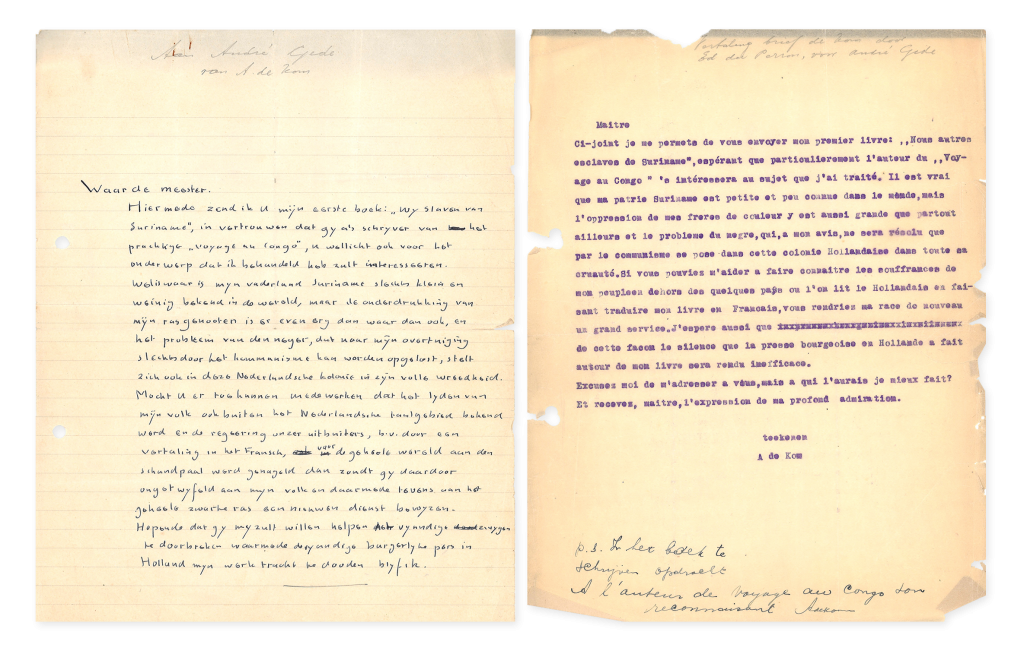 Aan André Gide
van A. de Kom
Waarde meester.
Hiermede zend ik U mijn eerste boek: „Wy slaven van
Suriname", in vertrouwen dat gy als schryver van het
prachtige „voyage au Congo", u wellicht ook voor het
onderwerp dat ik behandeld heb zult interesseeren.
Weliswaar is mijn vaderland Suriname slechts klein en
weinig bekend in de wereld, maar de onderdrukking van
mijn rasgenooten is er even erg dan waar dan ook, en
het probleem van den neger, dat naar mijn overtuiging
slechts door het kommunisme kan worden opgelost, stelt
zich ook in deze Nederlandsche kolonie in zijn volle wreedheid.
Mocht U er toe kunnen medewerken dat het lyden van
mijn volk ook buiten het Nederlandsche taalgebied bekend
word en de regeering onzer uitbuiters, b.v. door een
vertaling in het Fransch, voor de geheele wereld aan den
schandpaal word genageld dan zondt gy daardoor
ongetwyfeld aan myn volk en daarmede tevens aan het
geheele zwarte ras een nieuwen dienst bewyzen.
Hopende dat gy my zult willen helpen vyandige zwygen
te doorbreken waarmede de vyandige burgerlyke pers in
Holland myn werk tracht te dooden blyf ik.
Vertaling brief de Kom door
Ed du Perron, voor André Gide
Maitre
Ci-joint je me permets de vous envoyer mon premier livre: ,,Nous autres
esclaves de Suriname",espérant que particulierement l'auteur du ,,Voy-
age au Congo " 's intéressera au sujet que j'ai traité. Il est vrai
que ma patrie Suriname est petite et peu connue dans le monde,mais
l'oppression de mes freres de couleur y est aussi grande que partout
ailleurs et le probleme du negre,qui,a mon avis,ne sera résolu que
par le communisme se pose dans cette colonie Hollandaise dans toute sa
cruauté.Si vous pouviez m'aider a faire connaitre les souffrances de
mon peupleen dehors des quelques pays ou l'on lit le Hollandais en fai-
sant traduire mon livre en Francais,vous rendriez ma race de nouveau
un grand service.J'espere aussi que
de cette facon le silence que la presse bourgeoise en Hollande a fait
autour de mon livre sera rendu inefficace.
Excusez moi de m'adresser a vous,mais a qui l'aurais je mieux fait?
Et recevez, maitre,l'expression de ma profond admiration.
teekenen
A de Kom
p.s. In het boek te
schrijven opdracht
A l'auteur de Voyage au Congo son
reconnaissant